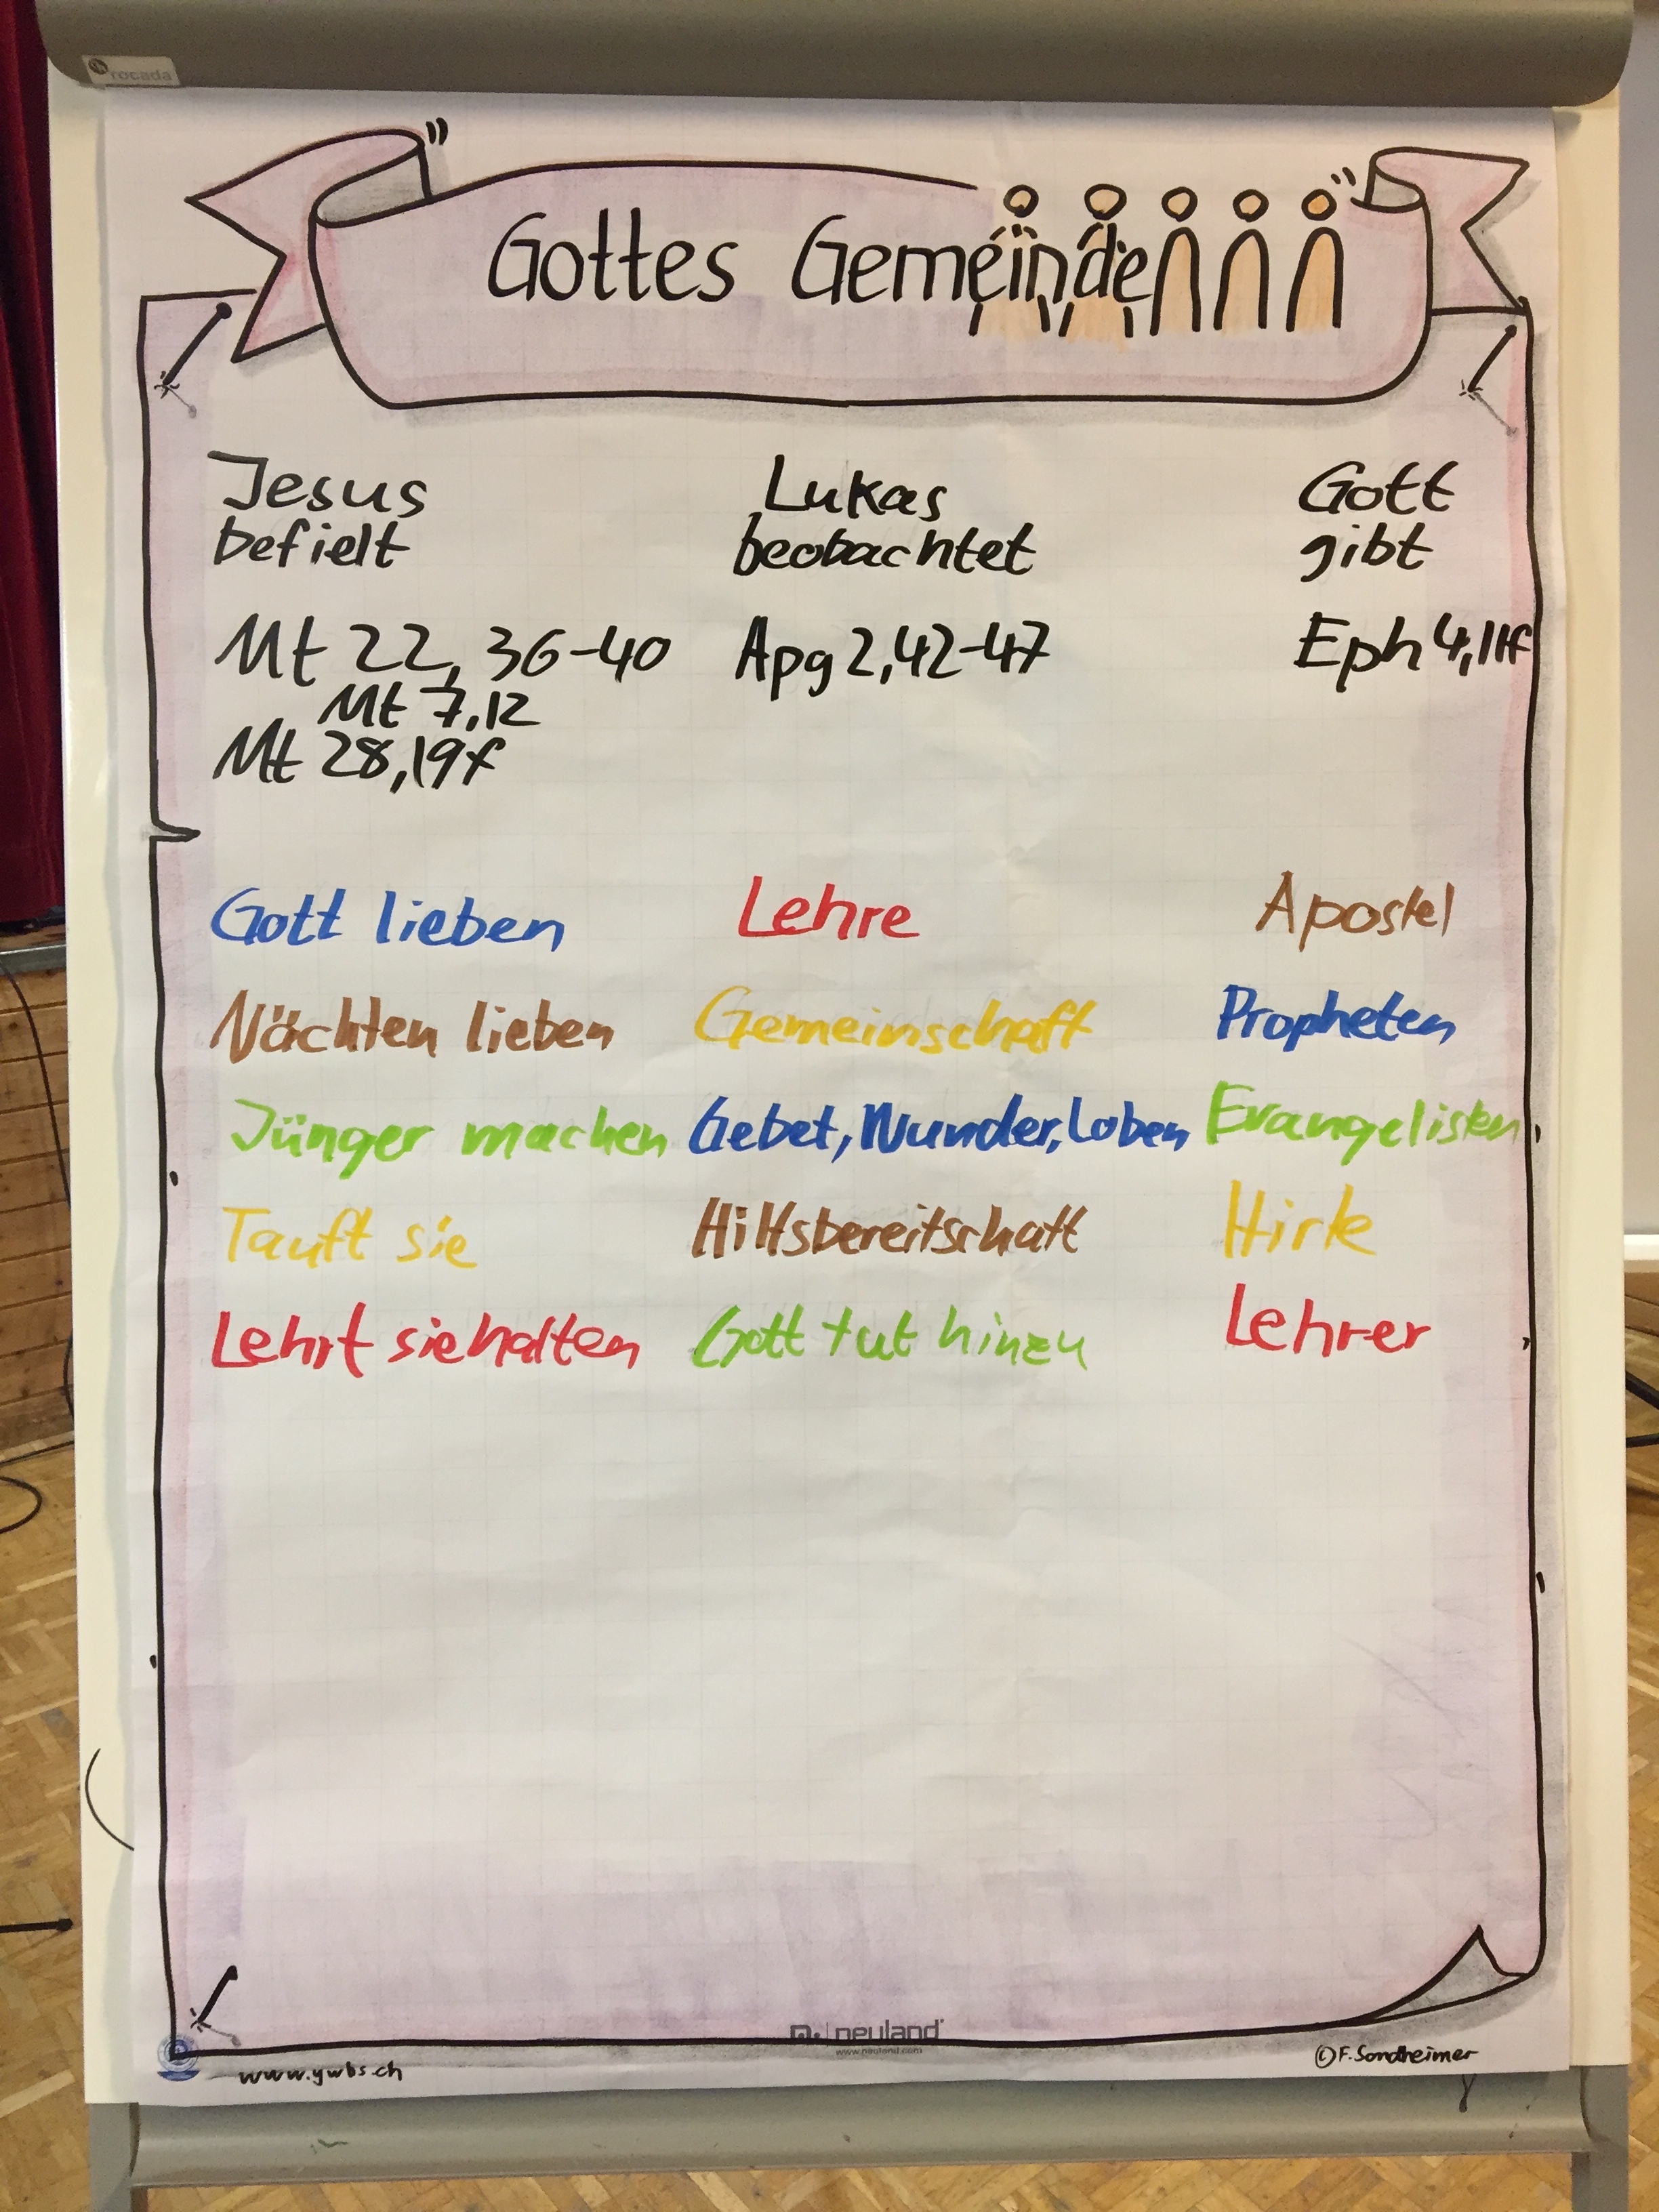 rocada
Gottes Gemeinde
Jesus
befielt
Mt 22, 36-40
Mt 7,12
Mt 28,19f
Lukas
beobachtet
Apg 2,42-47
Gott
gibt
Eph 4,11f
Gott lieben
Lehre
Apostel
Nächten lieben
Gemeinschaft
Propheten
Jünger machen
Gebet, Wunder, Loben
Evangelisten
Tauft sie
Hilfsbereitschaft
Hirte
Lehrt sie halten
Gott tut hinzu
Lehrer
neuland
www.neuland.com
www.ywbs.ch
©F. Sondheimer